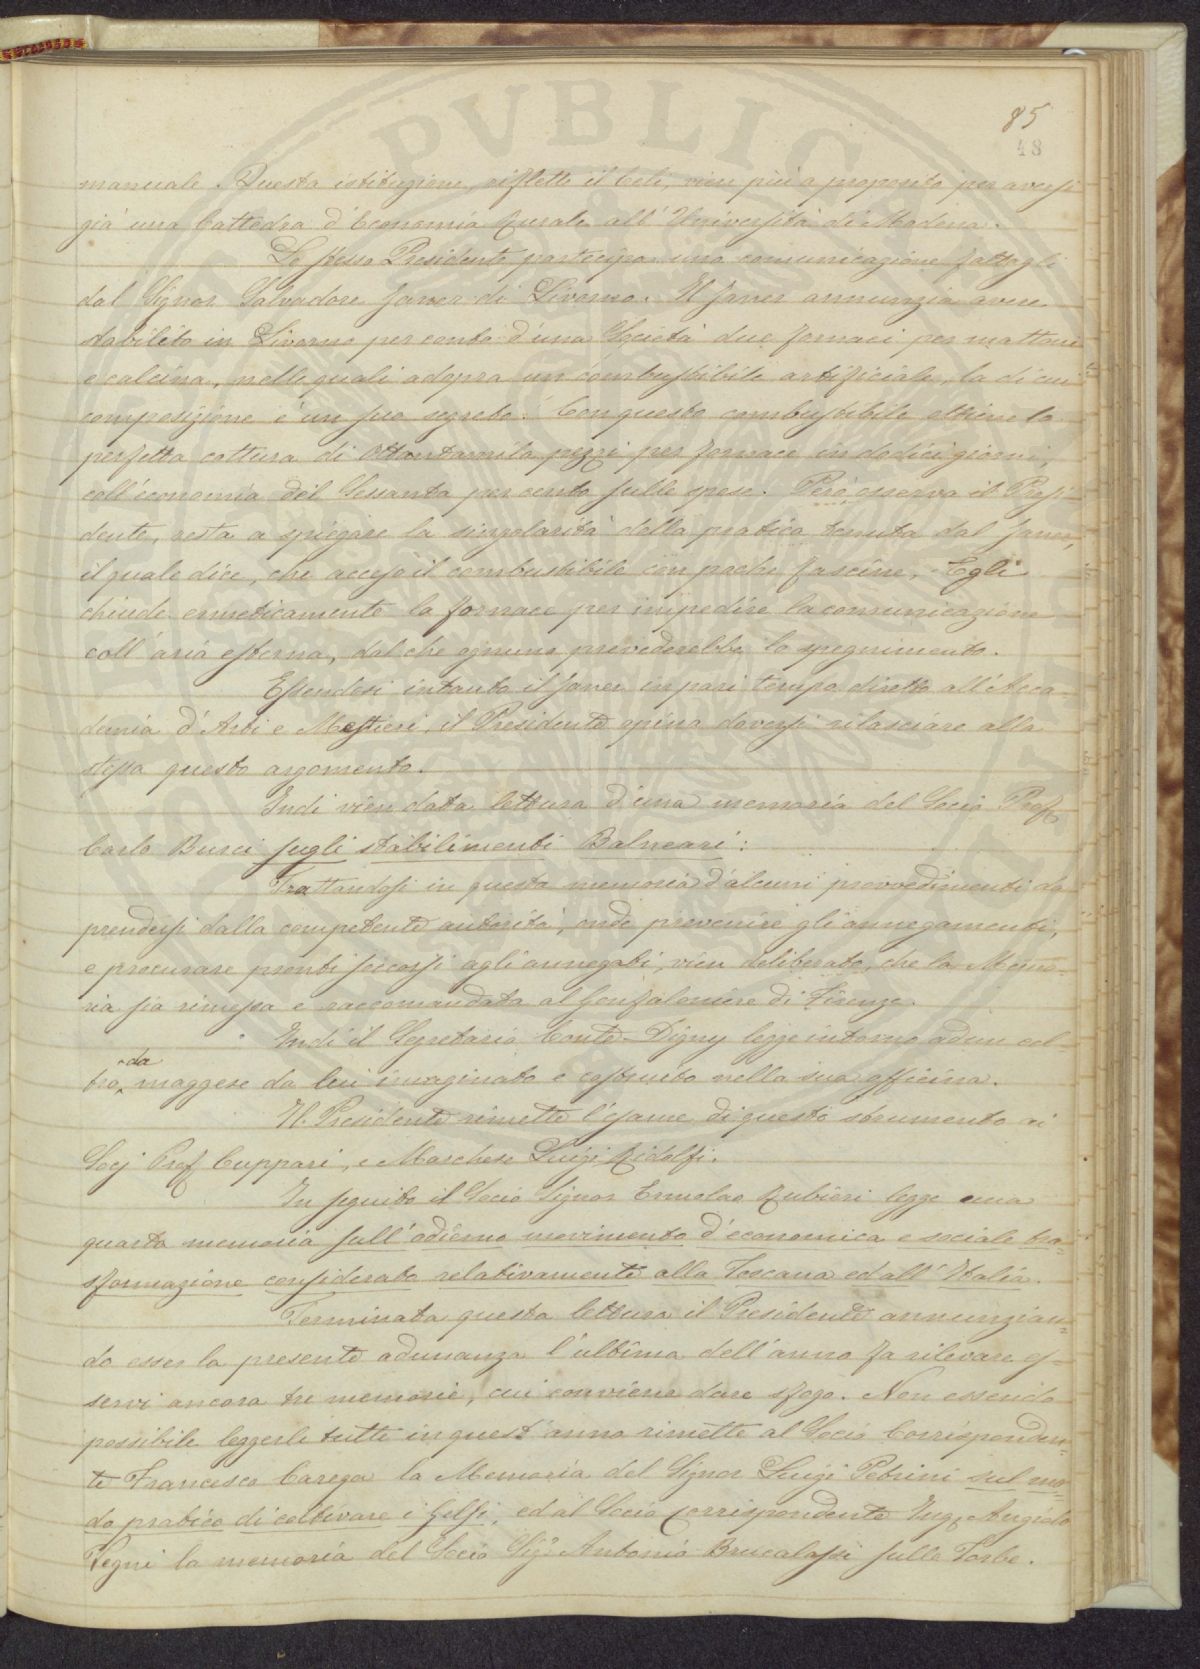 85
48
manuale. Questa istituzione, riflette il Celi, vien più a proposito per aversi
già una Cattedra d'Economia Rurale all'Università di Modena.
Lo stesso Presidente partecipa una comunicazione fattagli
dal Signor Salvadore Janer di Livorno. Il Janer annunzia avere
stabilito in Livorno per conto d'una Società due fornaci per mattoni
e calcina, nelle quali adopra un combustibile artificiale, la di cui
composizione è un suo segreto. Con questo combustibile ottiene la
perfetta cottura di Ottantamila pezzi per fornace in dodici giorni,
coll'economia del Sessanta per cento sulle spese. Però, osserva il Presi-
dente, resta a spiegare la singolarità della pratica tenuta dal Janer,
il quale dice, che acceso il combustibile con poche fascine, Egli
chiude ermeticamente la fornace per impedire la comunicazione
coll'aria esterna, dal che ognuno prevederebbe lo spegnimento.
Essendosi intanto il Janer in pari tempo diretto all'Acca-
demia d'Arti e Mestieri, il Presidente opina doversi rilasciare alla
stessa questo argomento.
Indi vien data lettura d'una memoria del Socio Prof.
Carlo Burci sugli stabilimenti Balneari:
Trattandosi in questa memoria d'alcuni provvedimenti da
prendersi dalla competente autorità, onde prevenire gli annegamenti,
e procurare pronti soccorsi agli annegati, vien deliberato, che la Memo-
ria sia rimessa e raccomandata al Gonfaloniere di Firenze.
Indi il Segretario Conte Digny legge intorno ad un col-
tro da maggese da lui immaginato e costruito nella sua officina.
Il Presidente rimette l'esame di questo strumento ai
Socj Prof. Cuppari, e Marchese Luigi Ridolfi.
In seguito il Socio Signor Ermolao Rubieri legge una
quarta memoria sull'odierno movimento d'economica e sociale tra-
sformazione considerato relativamente alla Toscana ed all'Italia.
Terminata questa lettura il Presidente annunzian-
do esser la presente adunanza l'ultima dell'anno fa rilevare es-
servi ancora tre memorie, cui conviene dare sfogo. Non essendo
possibile leggerle tutte in quest'anno rimette al Socio Corrisponden-
te Francesco Carega la Memoria del Signor Luigi Petrini sul mo-
do pratico di coltivare i Gelsi, ed al Socio corrispondente Ing. Angiolo
Vegni la memoria del Socio Sig. Antonio Brucalassi sulle Torbe.